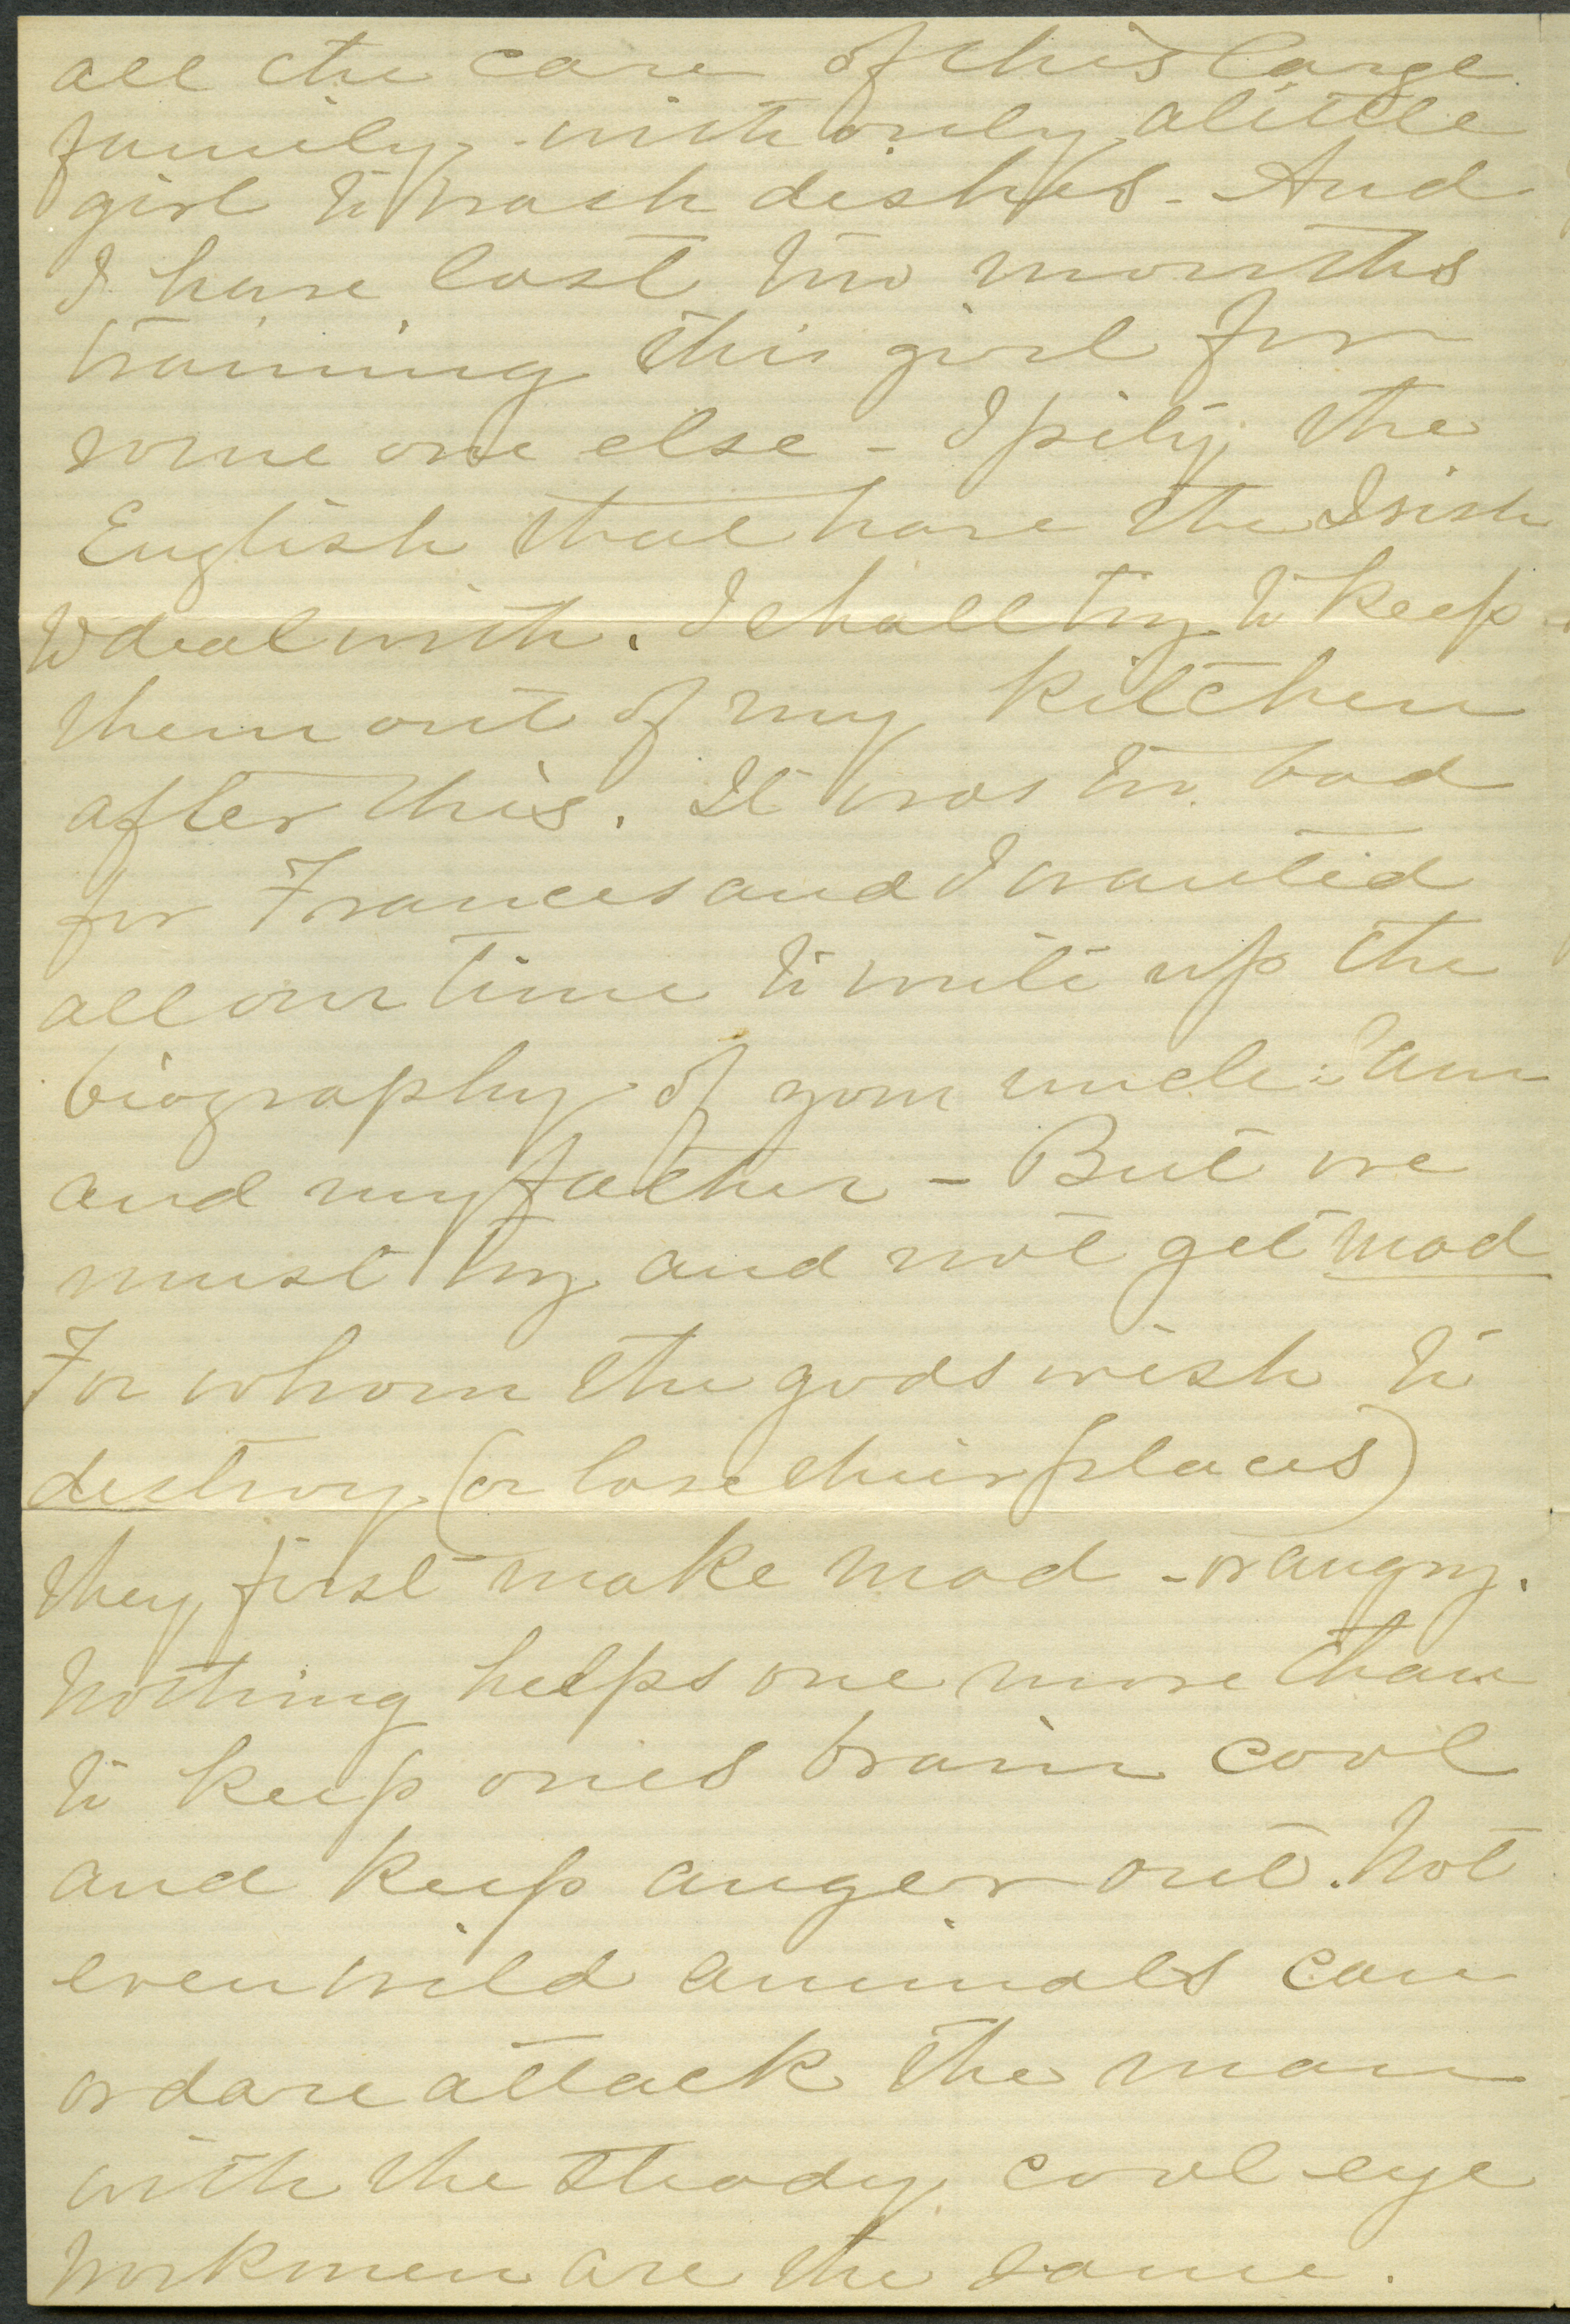 all the care of this large
family - with only a little
girl to wash dishes - And
I have lost two months
training this girl for
some one else - I pity the
English that have the Irish
to deal with. I shall try to keep
them out of my kitchen
after this. It was too bad
for Frances and I wanted
all our time to write up the
biography of your uncle Sam
and my father - But we
must try and not get mad
For whom the gods wish to
destroy (or lose their places)
they first make mad - or angry.
Nothing helps one more than
to keep ones brain cool
and keep anger out. Not
even wild animals can
or dare attack the man
with the steady cool eye
Workmen are the same.